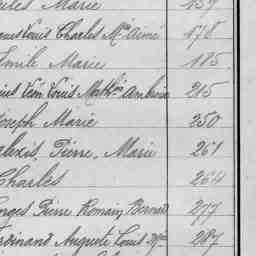 Marie 159
Louis Charles Mie Aimé 178
Emile Marie 185
Louis Mathin Ambroise 215
Joseph Marie 250
Alexis, Pierre, Marie 261
Charles 264
Georges Pierre Romain Bernard 277
Ferdinand Auguste Louis 287